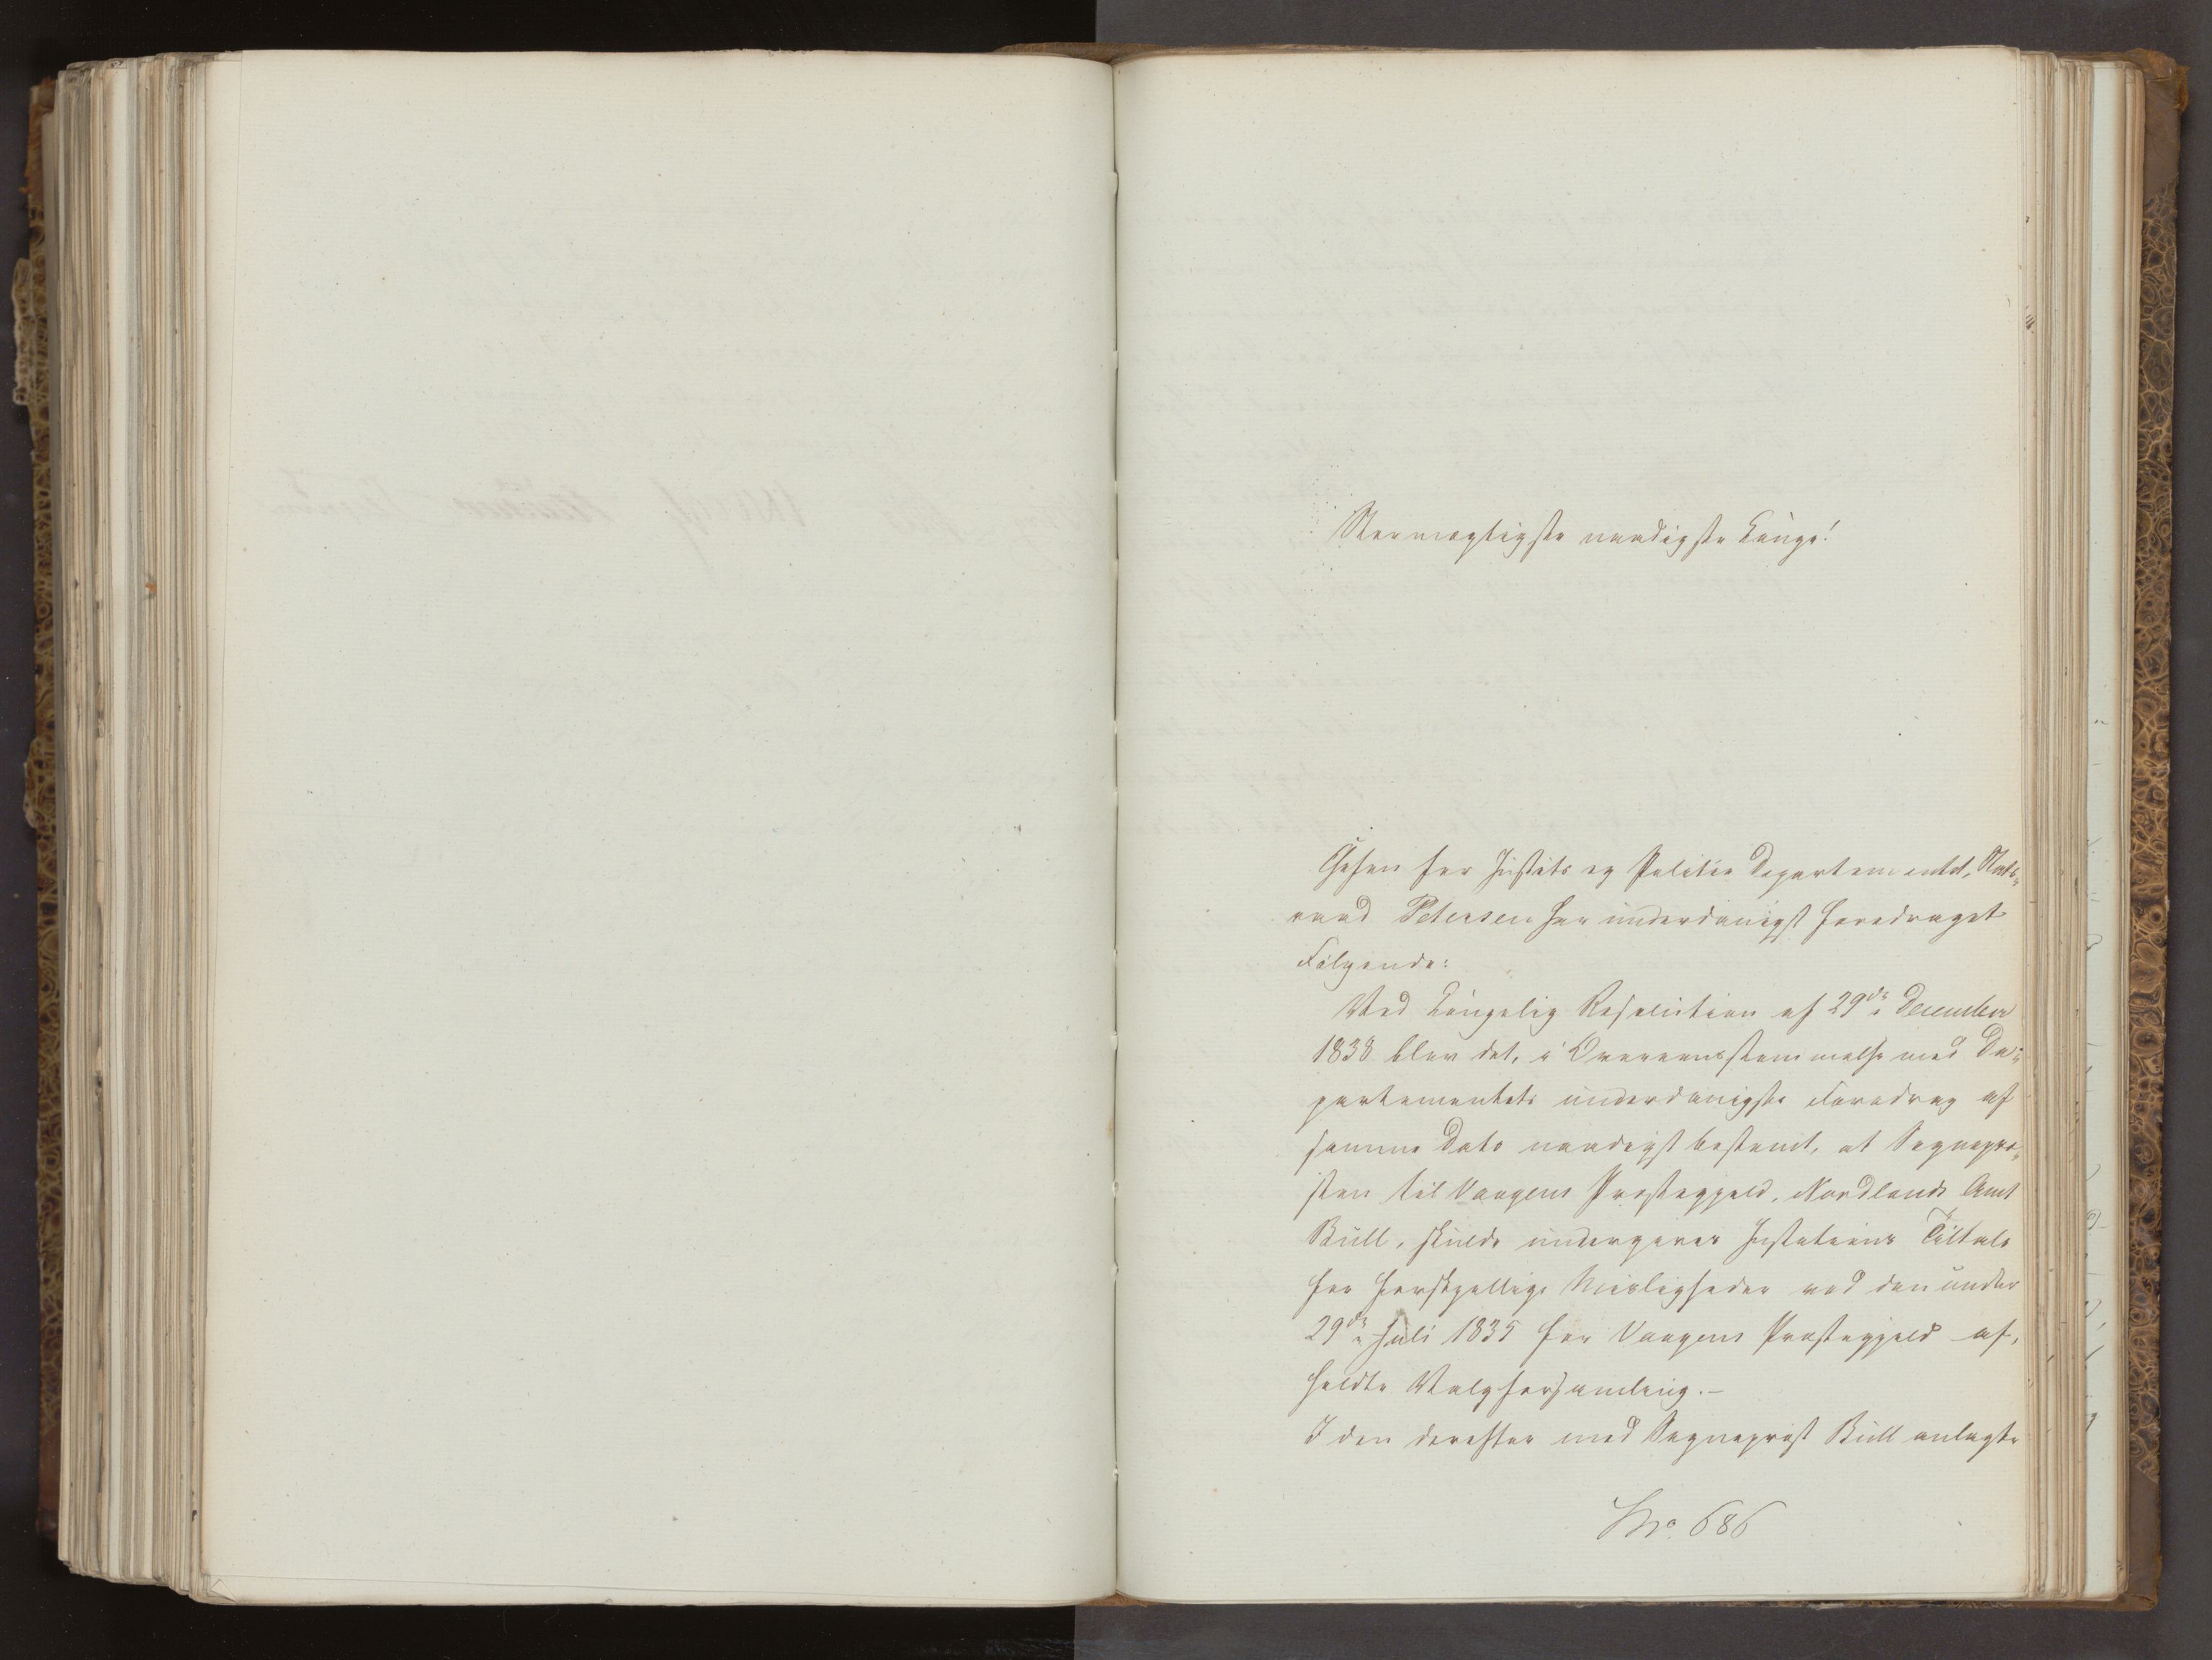 Stormægtigste naadigste Konge!
Chefen for Justits og Politie Departementet, Stats-
raad Petersen har underdanigst foredraget
Følgende:
Ved Kongelig Resolution af 29de December
1838 blev det, i Overeensstemmelse med De-
partementets underdanigste Foredrag af
samme Dato naadigst bestemt, at Sognepræ-
sten til Vaagens Præstegjeld, Nordlands Amt
Bull, skulde undergives Justitiens Tiltale
for forskjellige Misligheder ved den under
29de Juli 1835 for Vaagens Præstegjeld af-
holdte Valgforsamling.-
I den derefter mod Sognepræst Bull anlagte
No. 686